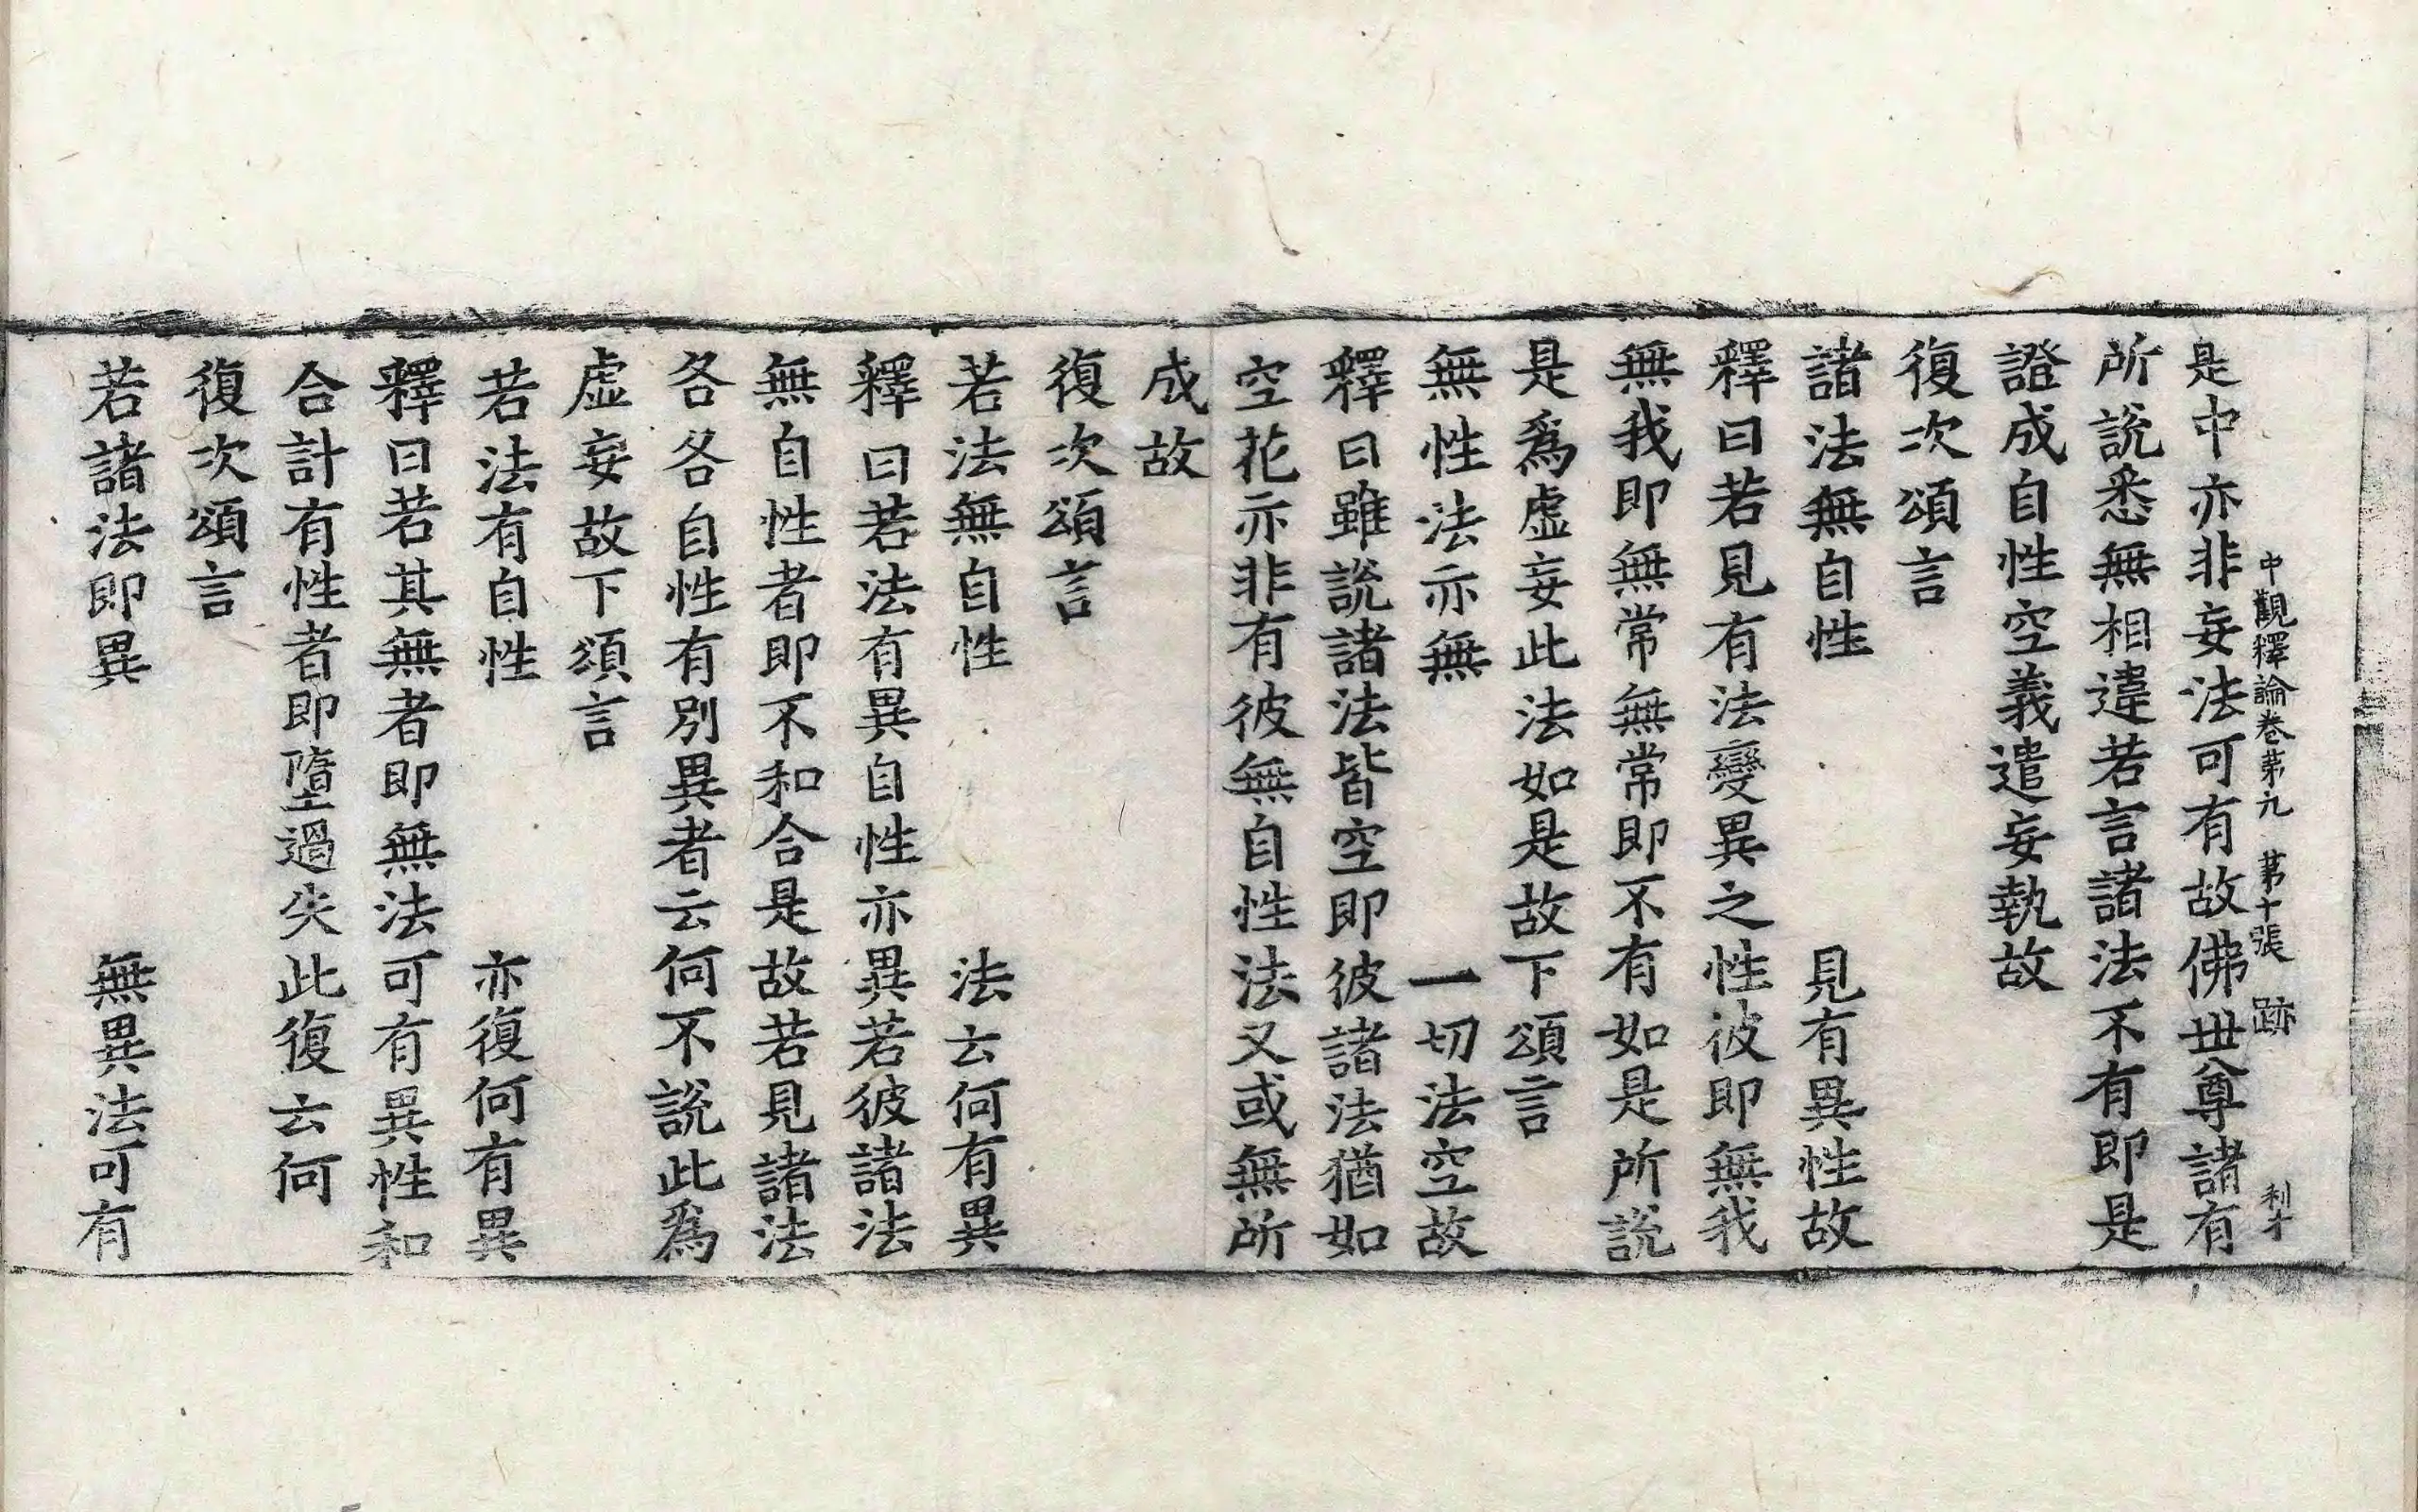 中觀釋論卷第九 第十張 跡 利才
是中亦非妄法可有故佛世尊諸有
所說悉無相違若言諸法不有即是
證成自性空義遣妄執故
復次頌言
諸法無自性 見有異性故
釋曰若見有法變異之性彼即無我
無我即無常無常即不有如是所說
是為虛妄此法如是故下頌言
無性法亦無 一切法空故
釋曰雖說諸法皆空即彼諸法猶如
空花亦非有彼無自性法又或無所
成故
復次頌言
若法無自性 法云何有異
釋曰若法有異自性亦異若彼諸法
無自性者即不和合是故若見諸法
各各自性有別異者云何不說此為
虛妄故下頌言
若法有自性 亦復何有異
釋曰若其無者即無法可有異性和
合計有性者即墮過失此復云何
復次頌言
若諸法即異 無異法可有